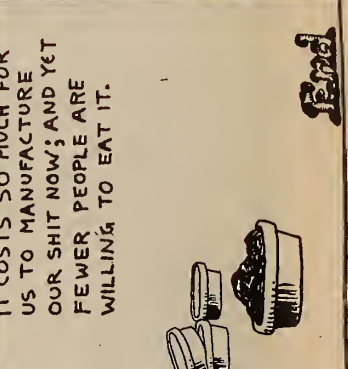 IT COSTS SO MUCH FOR
US TO MANUFACTURE
OUR SHIT NOW; AND YET
FEWER PEOPLE ARE
WILLING TO EAT IT.
End